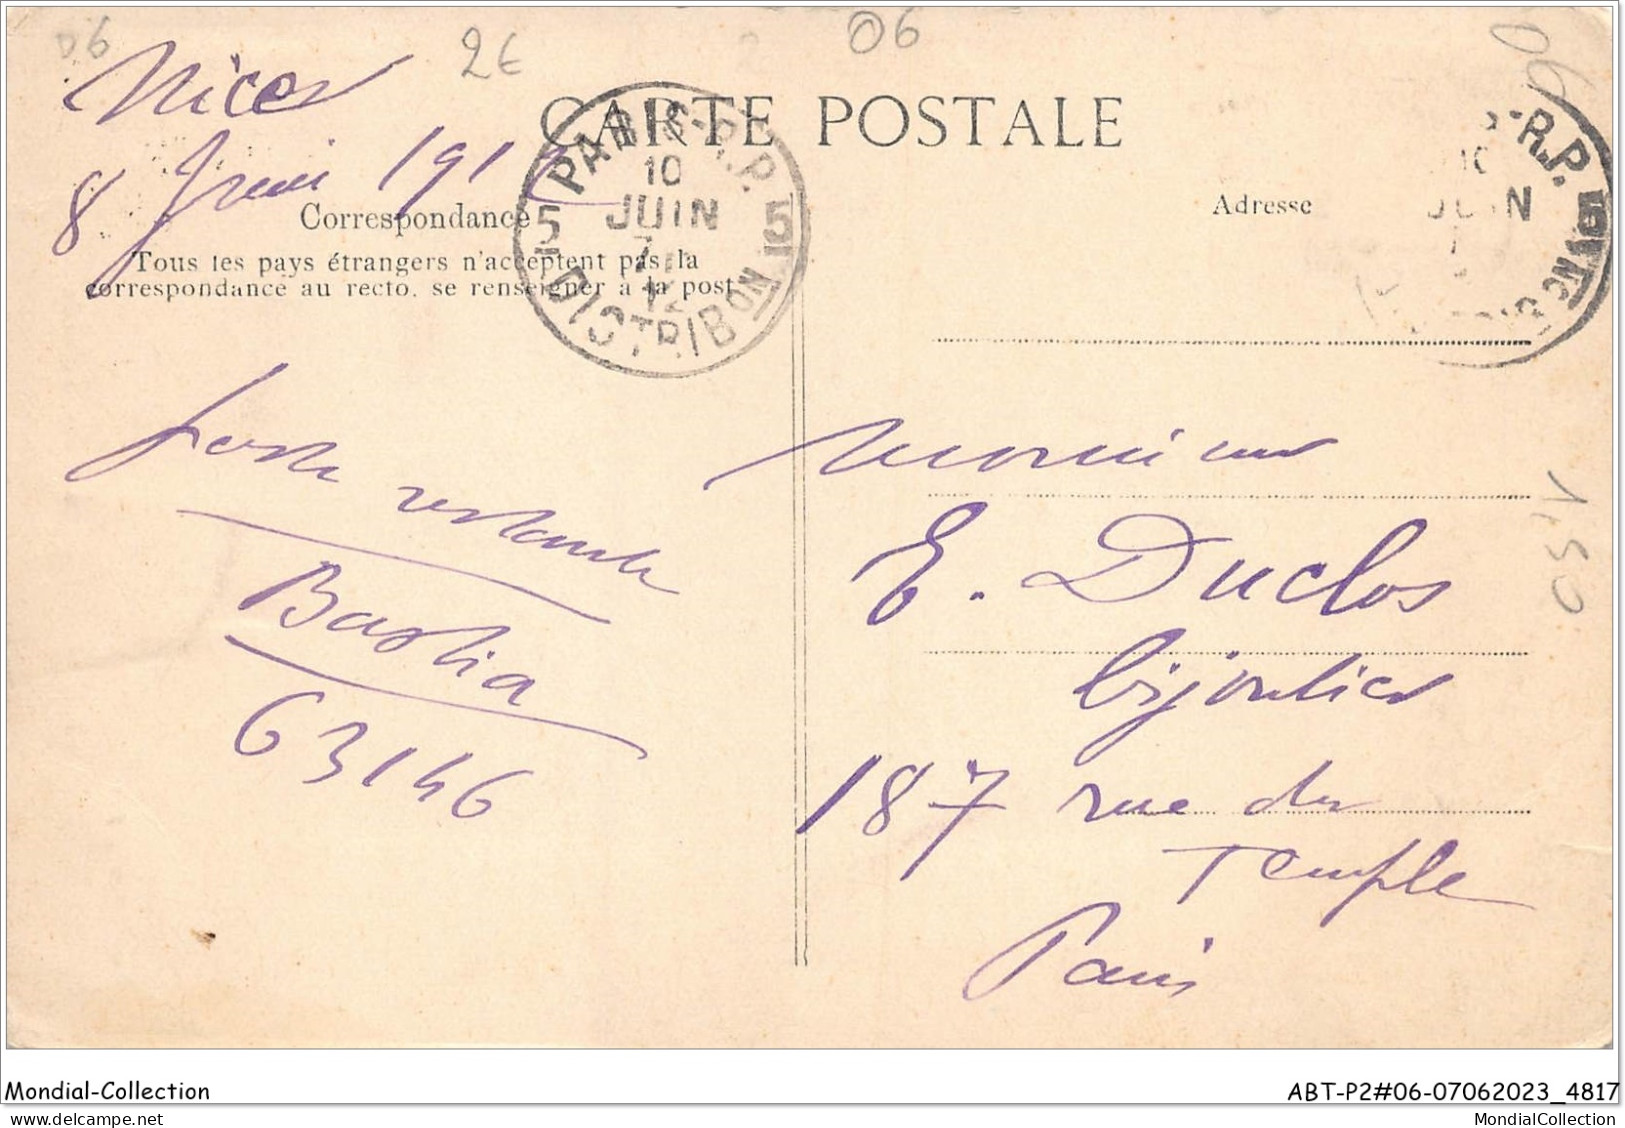 06
2€
06
06
Nice
8 Juin 1912
CARTE POSTALE
PARIS-R.P.
10
JUIN
5 5
12
DISTRIBON
-R.P.
10
JUIN
5
Correspondance
Adresse
Tous les pays étrangers n'acceptent pas la
correspondance au recto. se renseigner à la post
poste restante
Bastia
63146
Monsieur
E. Duclos
bijoutier
187 rue du
Temple
Paris
1,50
Mondial-Collection
ABT-P2#06-07062023_4817
MondialCollection
MondialCollection